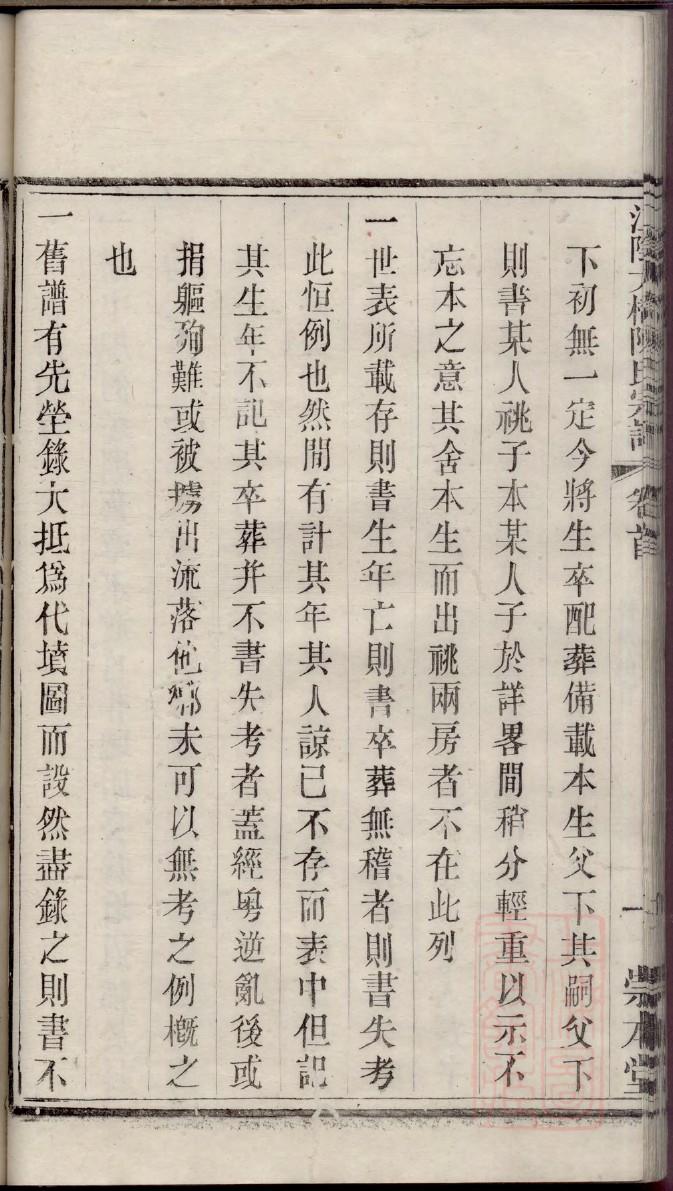 江陰大橋陳氏宗譜 卷首 崇本堂
下初無一定今將生卒配葬備載本生父下其嗣父下
則書某人祧子本某人子於詳畧間稍分輕重以示不
忘本之意其舍本生而出祧兩房者不在此列
一世表所載存則書生年亡則書卒葬無稽者則書失考
此恒例也然間有計其年其人諒已不存而表中但記
其生年不記其卒葬并不書失考者蓋經粵逆亂後或
捐軀殉難或被擄出流落他鄉未可以無考之例概之
也
一舊譜有先塋錄大抵爲代墳圖而設然盡錄之則書不